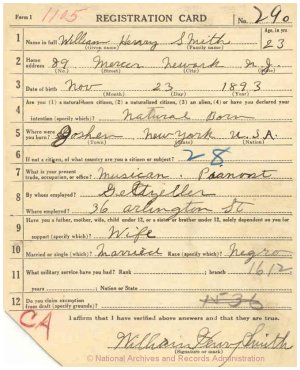 Form 1 1105 REGISTRATION CARD No. 290
1 Name in full William Henry Smith Age, in yrs. 23
(Given name) (Family name)
2 Home address 89 Mercer Newark N.J.
(No.) (Street) (City) (State)
3 Date of birth Nov 23 1893
(Month) (Day) (Year)
4 Are you (1) a natural-born citizen, (2) a naturalized citizen, (3) an alien, (4) or have you declared your
intention (specify which)? Natural Born
5 Where were you born? Goshen New York U.S.A.
(Town) (State) (Nation)
6 If not a citizen, of what country are you a citizen or subject? 28
7 What is your present trade, occupation, or office? Musican. Pianoist
8 By whom employed?
Where employed? 36 Arlington St.
9 Have you a father, mother, wife, child under 12, or a sister or brother under 12, solely dependent on you for
support (specify which)? Wife
10 Married or single (which)? Married Race (specify which)? Negro
11 What military service have you had? Rank ; branch 1612
years ; Nation or State
12 Do you claim exemption from draft (specify grounds)?
CA I affirm that I have verified above answers and that they are true.
William Henry Smith
(Signature or mark)
© National Archives and Records Administration